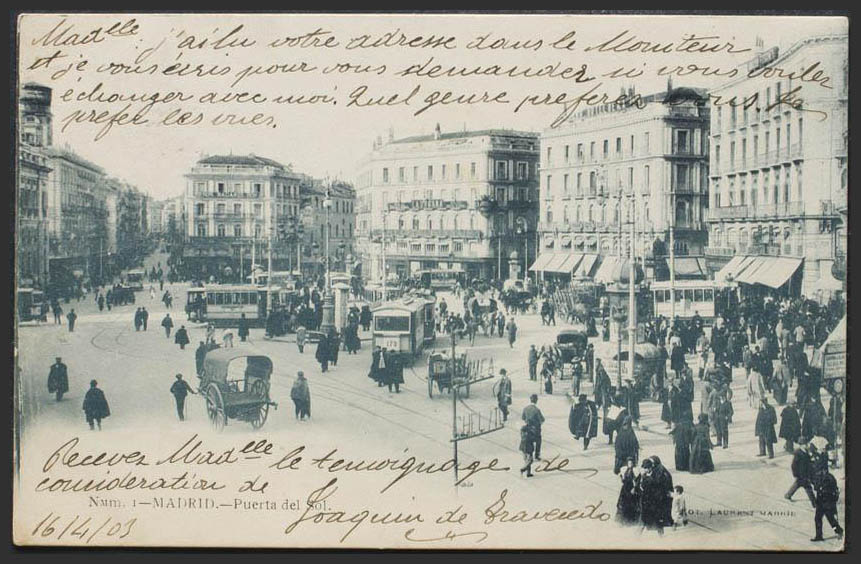 Madelle. j'ai lu votre adresse dans le Moniteur
et je vous écris pour vous demander si vous voulez
échanger avec moi. Quel genre preferez vous. Je
prefer les vues.
Recevez Madelle le temoignage de
consideration de
Num. 1—MADRID.—Puerta del Sol.
Joaquin de
16/4/03
LAURENT MADRID